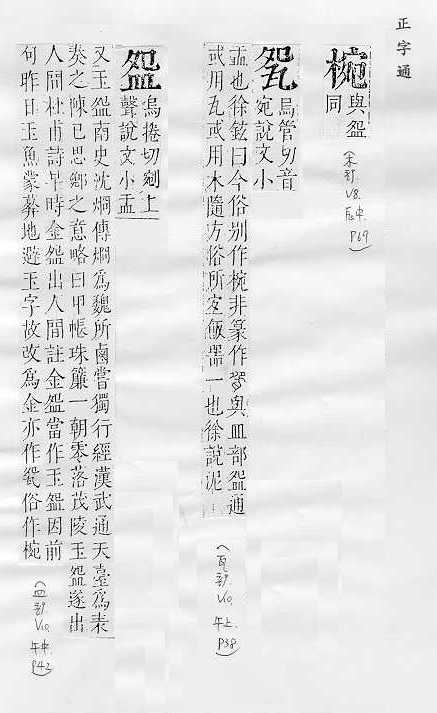 正字通
椀 與盌
同
(木部
V8.
辰中.
P69)
㼝 烏管切音
宛說文小
盂也徐鉉曰今俗別作椀非篆作㼝與皿部盌通
或用瓦或用木隨方俗所宜飯器一也徐說泥
(瓦部
V10.
午上.
P38)
盌 烏捲切剜上
聲說文小盂
又玉盌南史沈烱傳烱爲魏所鹵嘗獨行經漢武通天臺爲表
奏之陳已思鄉之意略曰甲帳珠簾一朝零落茂陵玉盌遂出
人間杜甫詩早時金盌出人間註金盌當作玉盌因前
句昨日玉魚蒙葬地避玉字故改爲金亦作㼝俗作椀
(皿部
V10.
午中.
P42)